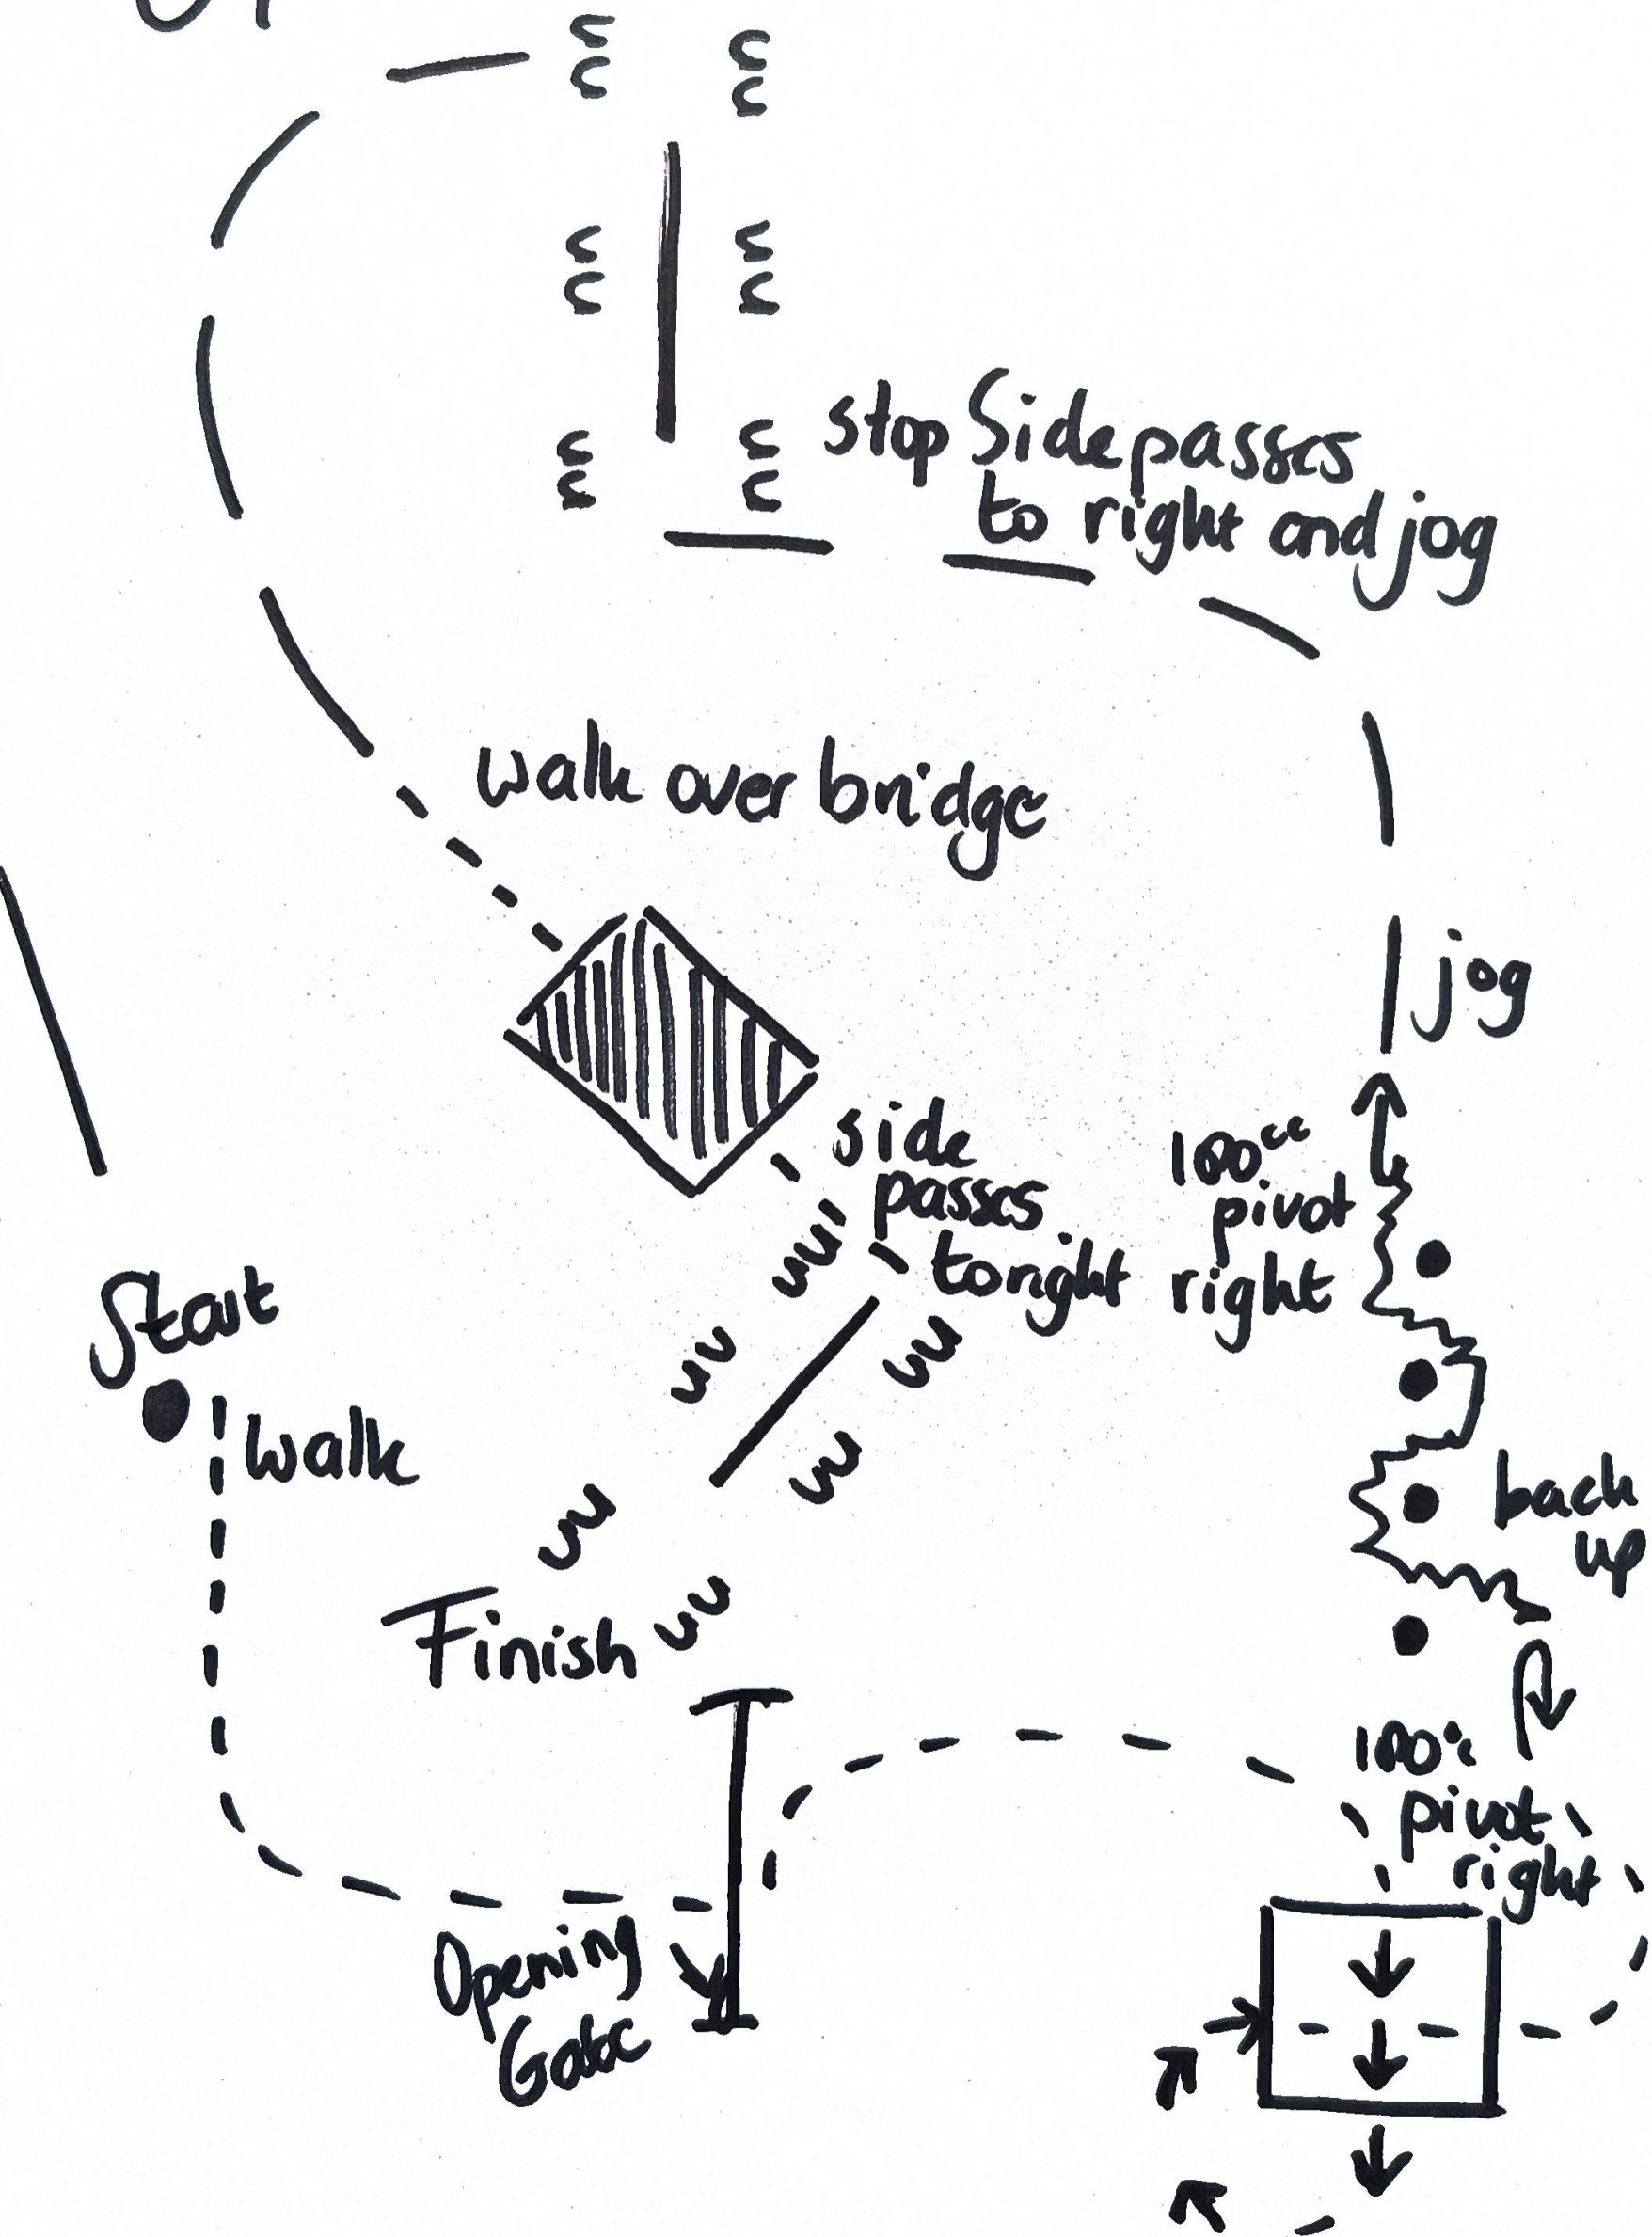 stop Sidepasses
to right and jog
walk over bridge
jog
side
passes
to right
pivot
right
Start
walk
back
up
Finish
pivot
right
Opening
Gate